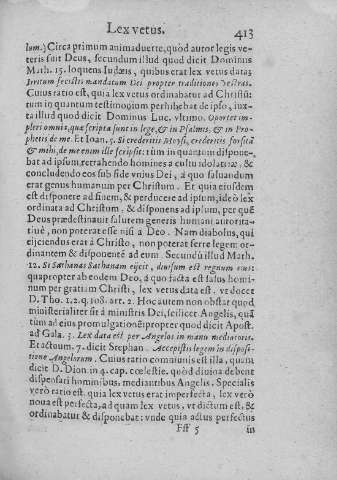 Lex vetus. 413
lum.) Circa primum animaduerte, quòd autor legis ve-
teris fuit Deus, secundum illud quod dicit Dominus
Math. 15. loquens Iudæis, quibus erat lex vetus data;
Irritum fecistis mandatum Dei propter traditiones vestras.
Cuius ratio est, quia lex vetus ordinabat ad Christū:
tum in quantum testimonium perhibebat de ipso, iux-
ta illud quod dicit Dominus Luc. vltimo. Oportet im-
pleri omnia, quæ scripta sunt in lege, & in Psalmis, & in Pro-
phetis de me. Et Ioan. 5. Si crederitis Moysi, crederitis forsitā
& mihi, de me enim ille scripsit: tùm in quantum dispone-
bat ad ipsum, retrahendo homines a cultu idolatriæ, &
concludendo eos sub fide vnius Dei, à quo saluandum
erat genus humanum per Christum. Et quia eiusdem
est disponere ad finem, & perducere ad ipsum, ideò lex
ordinata ad Christum, & disponens ad ipsum, per quē
Deus prædestinauit salutem generis humani autorita-
tiuè, non poterat esse nisi à Deo. Nam diabolus, qui
eijciendus erat à Christo, non poterat ferre legem or-
dinantem & disponentē ad eum. Secundū illud Math.
12. Si Sathanas Sathanam eijcit, diuisum est regnum eius:
quapropter ab eodem Deo, à quo facta est salus homi-
num per gratiam Christi, lex vetus data est. vt docet
D. Tho. 1. 2. q. 108. art. 2. Hoc autem non obstat quòd
ministerialiter sit à ministris Dei, scilicet Angelis, quā
tùm ad eius promulgationē: propter quod dicit Apost.
ad Gala. 3. Lex data est per Angelos in manu mediatoris.
Et actuum. 7. dicit Stephan. Accepistis legem in disposi-
tione Angelorum. Cuius ratio communis est illa, quam
dicit D. Dion. in 4. cap. cœlestiæ. quòd diuina debent
dispensari hominibus, mediantibus Angelis. Specialis
verò ratio est. quia lex vetus erat imperfecta, lex verò
noua est perfecta, ad quam lex vetus, vt dictum est, &
ordinabatur & disponebat: vnde quia actus perfectus
Fff 5 in